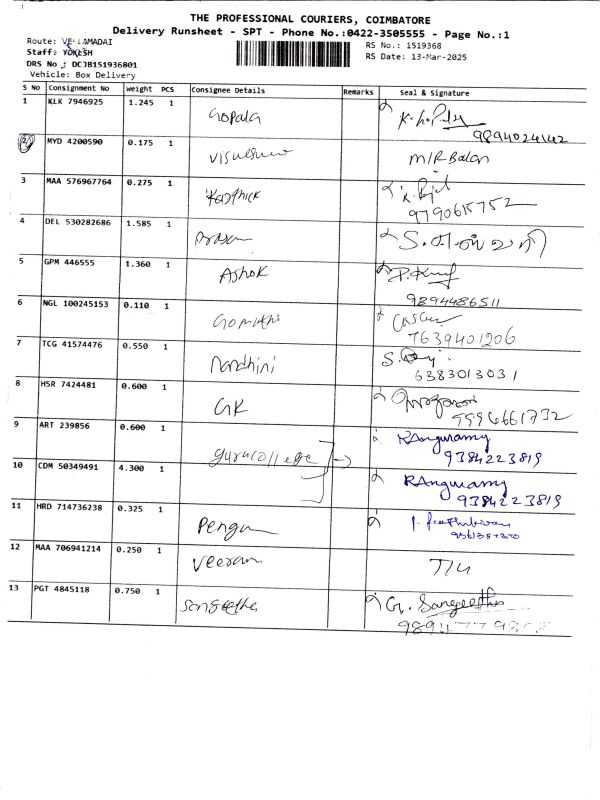 THE PROFESSIONAL COURIERS, COIMBATORE
Delivery Runsheet - SPT - Phone No.:0422-3505555 - Page No.:1
Route: VELLAMADAI
RS No.: 1519368
Staff: YOKESH
RS Date: 13-Mar-2025
DRS No : DCJB151936801
Vehicle: Box Delivery
S No Consignment No Weight PCS Consignee Details Remarks Seal & Signature
1 KLK 7946925 1.245 1 Gopala
9894024142
2 MYD 4200590 0.175 1 M/R Balan
3 MAA 576967764 0.275 1 Karthick
9790615752
4 DEL 530282686 1.585 1
5 GPM 446555 1.360 1 Ashok P.
9894486511
6 NGL 100245153 0.110 1 Gomathi
7639401206
7 TCG 41574476 0.550 1 Nandhini S.
6383013031
8 HSR 7424481 0.600 1 GK
9996661732
9 ART 239856 0.600 1 gurucollege RAngusamy
9384223819
10 CDM 50349491 4.300 1 RAngusamy
9384223819
11 HRD 714736238 0.325 1
12 MAA 706941214 0.250 1 Veeram
13 PGT 4845118 0.750 1 Sangeetha G. Sangeetha